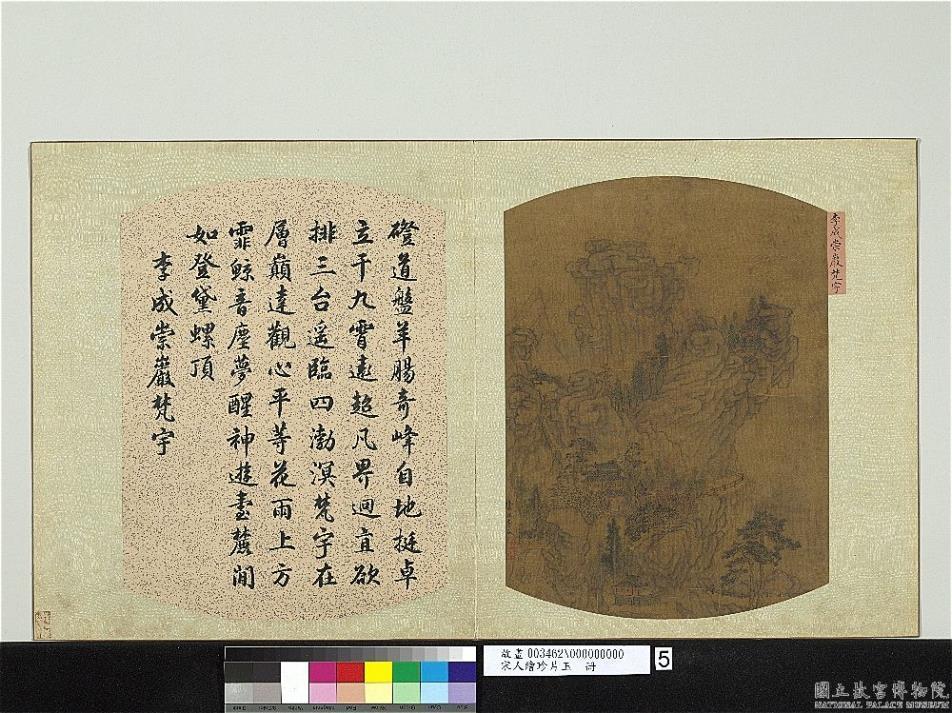 李成崇巖梵宇
磴道盤羊腸奇峰自地挺卓
立干九霄遠超凡界迥直欲
排三台遥臨四渤溟梵宇在
層巔達觀心平等花雨上方
霏鯨音塵夢醒神遊畫麓間
如登黛螺頂
李成崇巖梵宇
故畫 003462N000000000
宋人繪珍片玉 冊
5
國立故宮博物院
NATIONAL PALACE MUSEUM